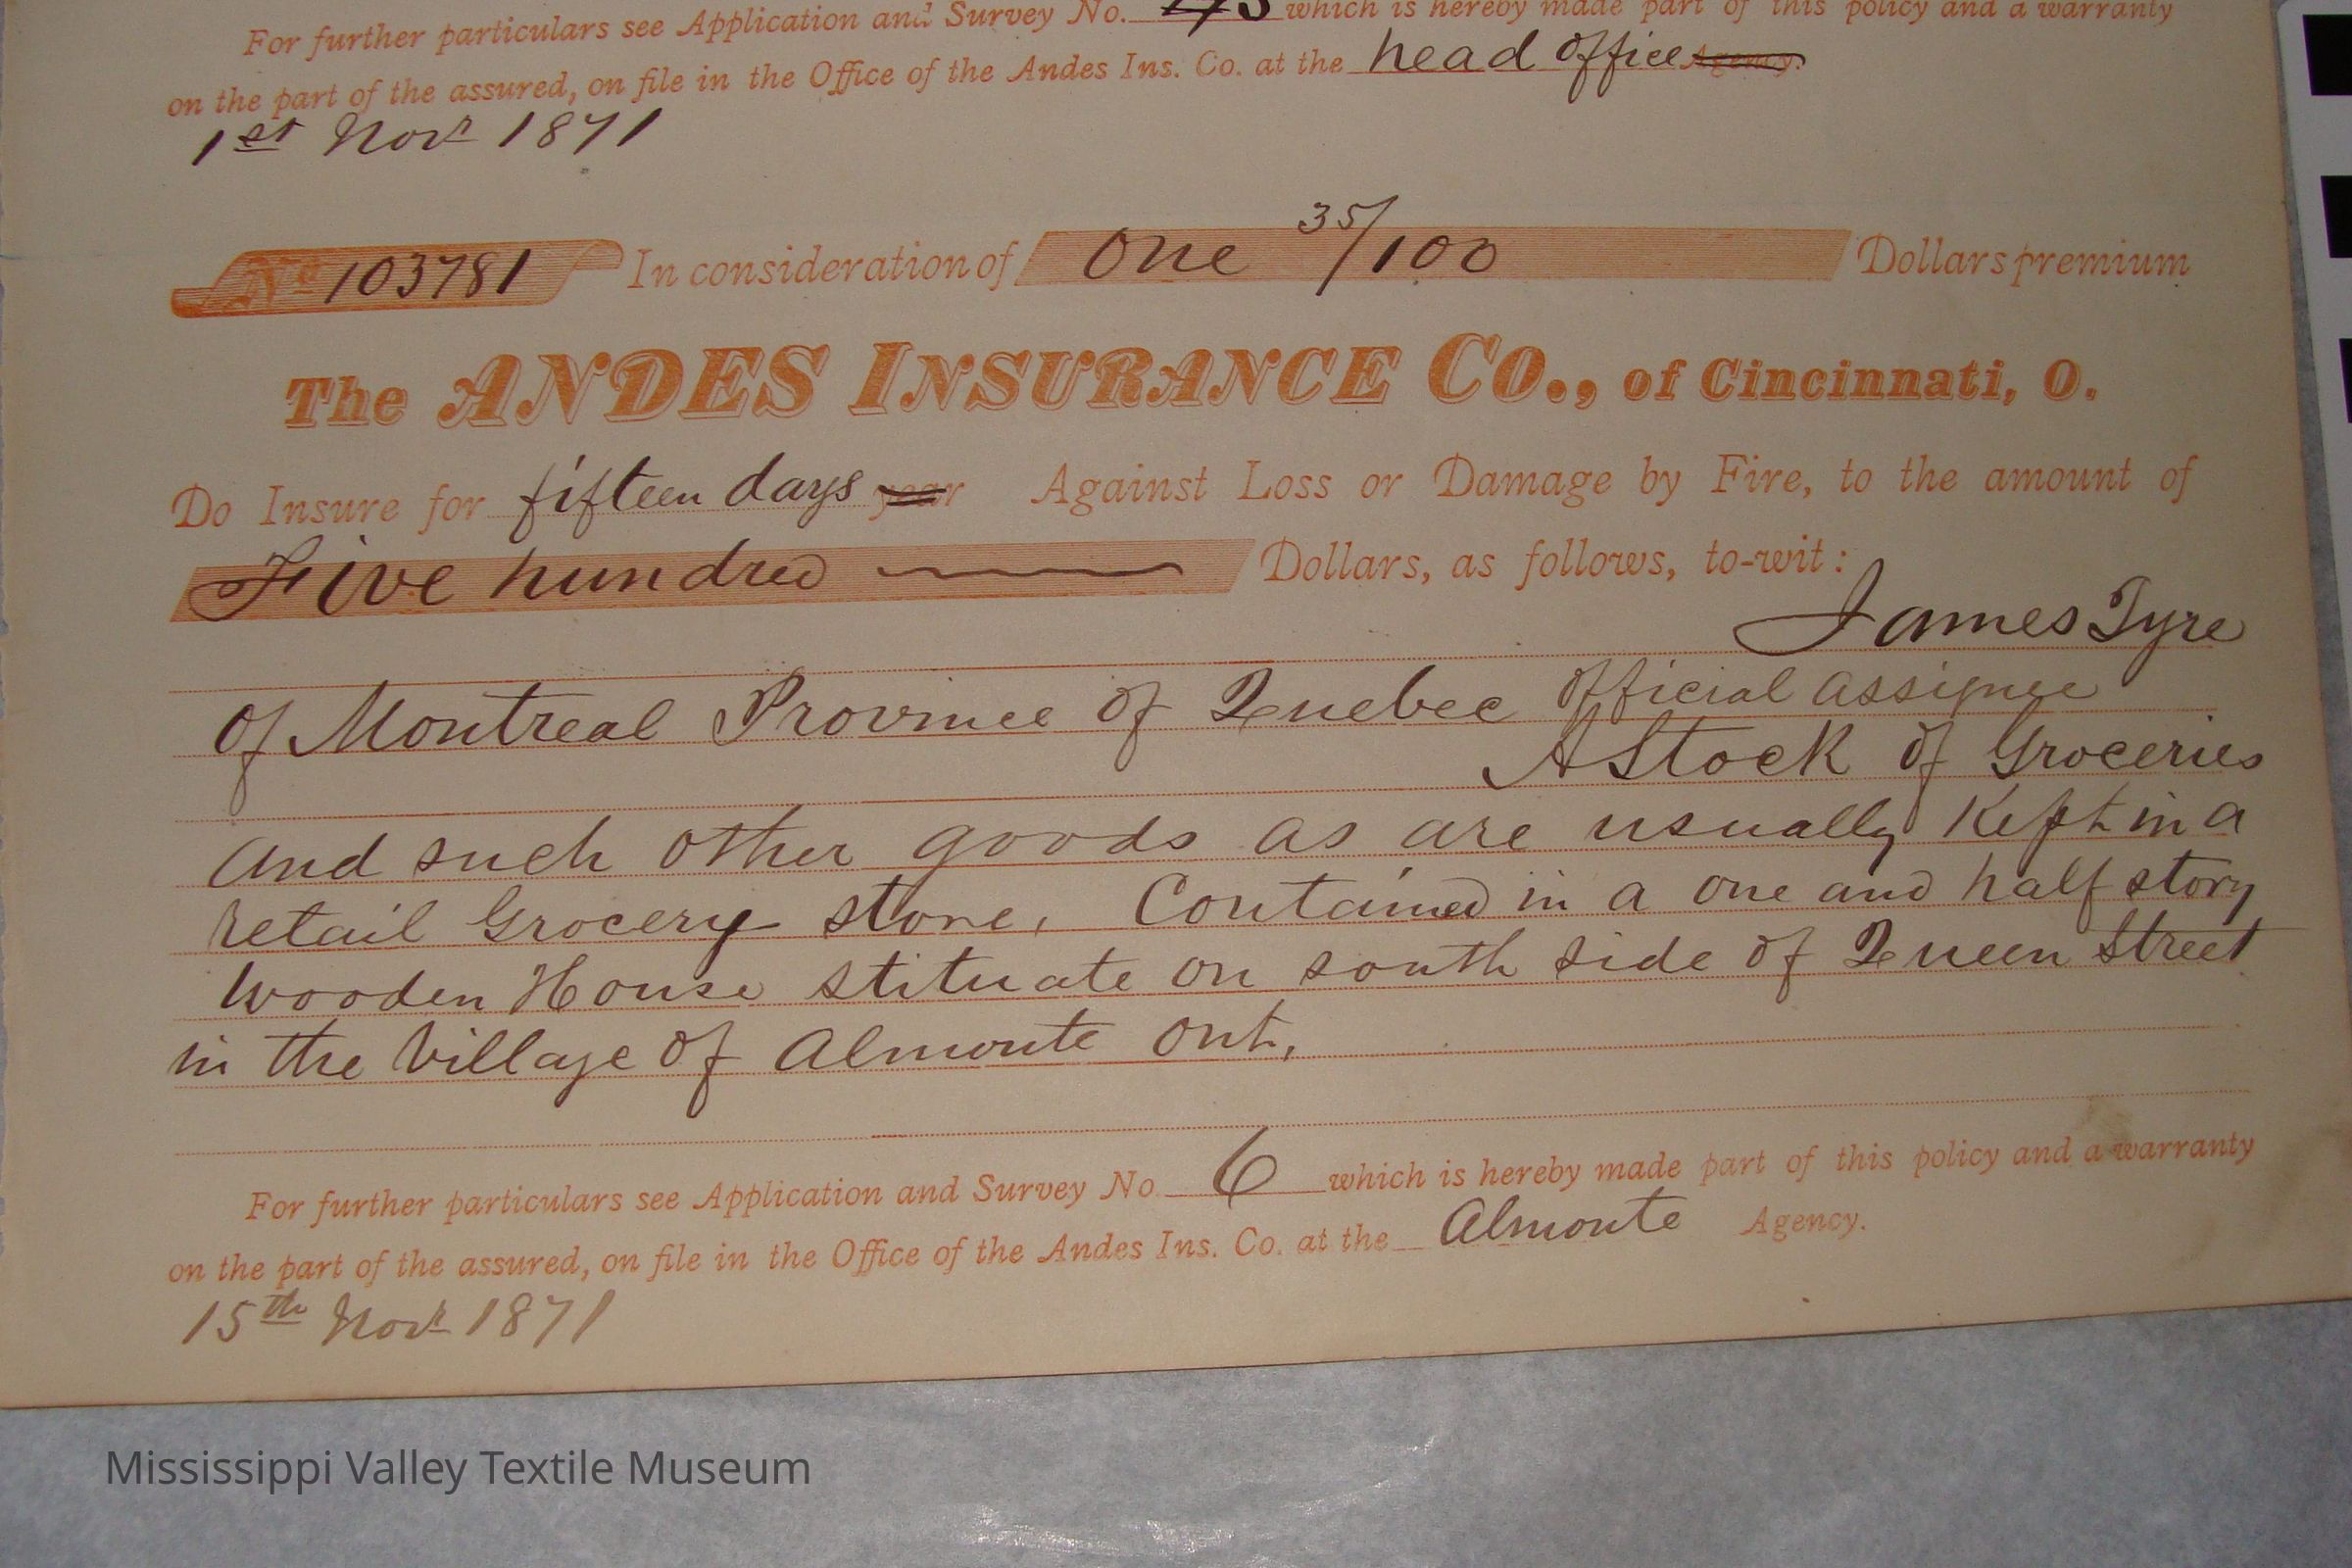 For further particulars see Application and Survey No. which is hereby made part of this policy and a warranty
on the part of the assured, on file in the Office of the Andes Ins. Co. at the head office Agency.
1st Novr 1871
No 103781 In consideration of One 35/100 Dollars premium
The ANDES INSURANCE CO., of Cincinnati, O.
Do Insure for fifteen days year Against Loss or Damage by Fire, to the amount of
Five hundred Dollars, as follows, to-wit:
James Tyre
of Montreal Province of Quebec official assignee
A Stock of Groceries
and such other goods as are usually Kept in a
retail Grocery store, Contained in a one and half story
wooden House stituate on south side of Queen Street
in the Village of Almonte Ont,
For further particulars see Application and Survey No 6 which is hereby made part of this policy and a warranty
on the part of the assured, on file in the Office of the Andes Ins. Co. at the Almonte Agency.
15th Novr 1871
Mississippi Valley Textile Museum